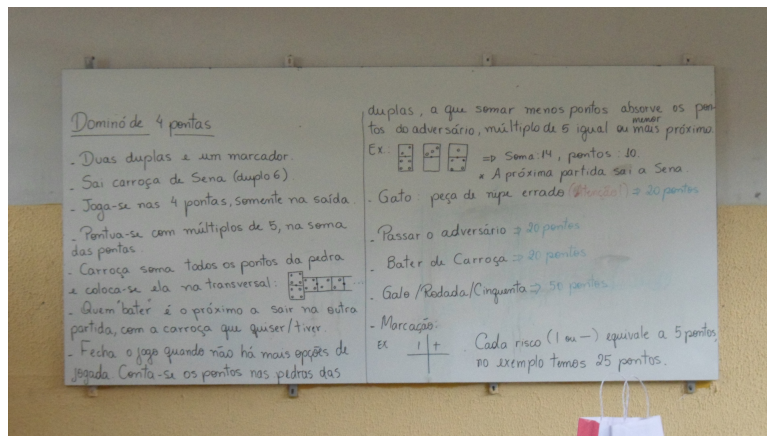 Dominó de 4 pontas
- Duas duplas e um marcador.
- Sai carroça de Sena (duplo 6)
- Joga-se nas 4 pontas, somente na saída.
- Pontua-se com múltiplos de 5, na soma
das pontas.
- Carroça soma todos os pontos da pedra
e coloca-se ela na transversal:
- Quem "bater" é o próximo a sair na outra
partida, com a carroça que quiser/tiver.
- Fecha o jogo quando não há mais opções de
jogada. Conta-se os pontos nas pedras das
duplas, a que somar menos pontos absorve os pon-
tos do adversário, múltiplo de 5 igual ou menor mais próximo.
Ex.: => Soma: 14, pontos: 10.
* A próxima partida sai a Sena.
- Gato: peça de nipe errado (Atenção!) => 20 pontos
- Passar o adversário => 20 pontos
- Bater de Carroça => 20 pontos
- Galo/Rodada/Cinquenta => 50 pontos
- Marcação:
Ex Cada risco (| ou —) equivale a 5 pontos,
no exemplo temos 25 pontos.